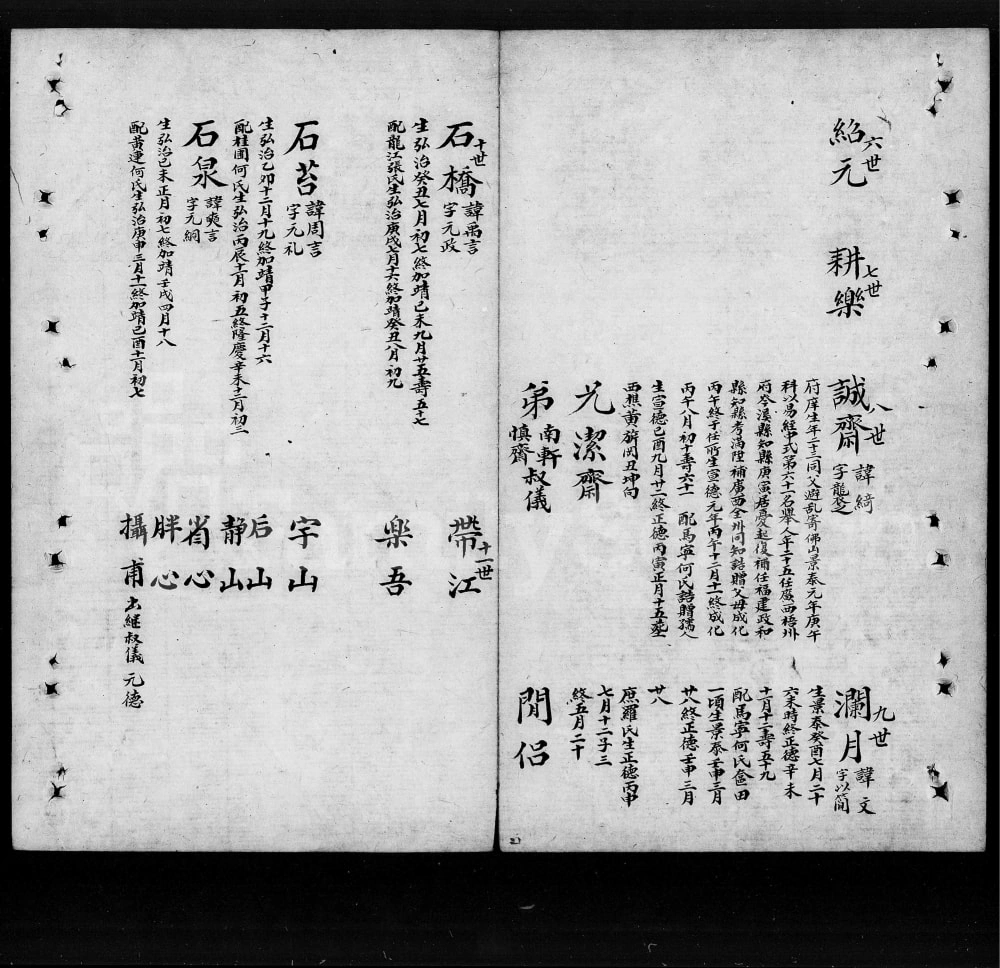 六世
紹元
七世
耕樂
八世
誠齋
諱綺
字龍芝
府庠生年二十三同父避乱寄佛山景泰元年庚午
科以易經中式第六十一名舉人年二十五任廣西梧州
府岑溪縣知縣庚寅居憂起復補任福建政和
縣知縣考滿陞補廣西全州同知誥贈父母成化
丙午終于任所生宣德元年丙午十二月十一終成化
丙午八月初十壽六十一 配馬寧何氏誥贈孺人
生宣德己酉九月廿二終正德丙寅正月十五葬
西樵黄旂岡丑坤向
兄潔齋
弟
南軒
慎齋
叔儀
九世
瀾月
諱文
字以簡
生景泰癸酉七月二十
六未時終正德辛未
十一月十二壽五十九
配馬寧何氏奩田
一頃生景泰壬申三月
廿八終正德壬申三月
廿八
庶羅氏生正德丙申
七月十二子三
終五月二十
閒侣
十世
石橋
諱禹言
字元政
生弘治癸丑七月初七終加靖己未九月廿五壽五十七
配龍江張氏生弘治庚戌七月十六終加靖癸丑八月初九
石苔
諱周言
字元礼
生弘治乙卯十二月十九終加靖甲子十二月十六
配桂圃何氏生弘治丙辰十一月初五終隆慶辛未十二月初三
石泉
諱爽言
字元綱
生弘治己未正月初七終加靖壬戌四月十八
配黄連何氏生弘治庚申三月十一終加靖己酉十一月初七
十一世
帶江
楽吾
宇山
后山
静山
省心
胖心
攝甫
出継叔儀 元德